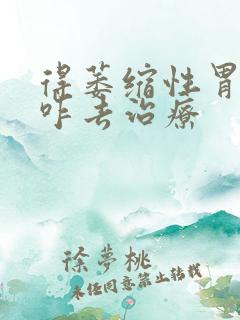 得萎缩性胃
咋去治疗
徐夢桃
未经同意禁止转载